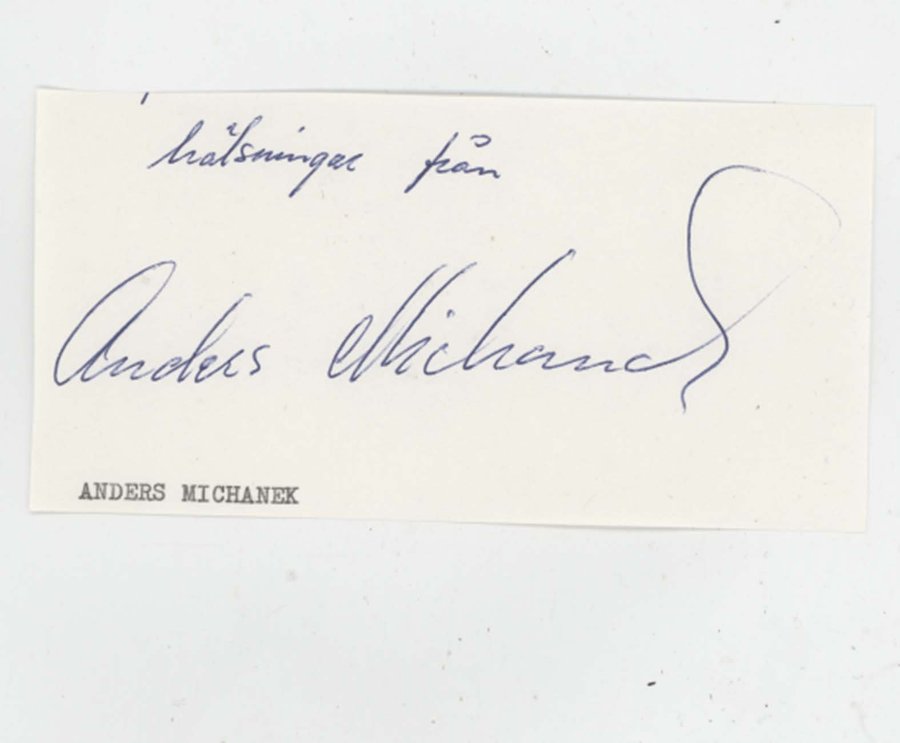 hälsningar från
Anders Michanek
ANDERS MICHANEK